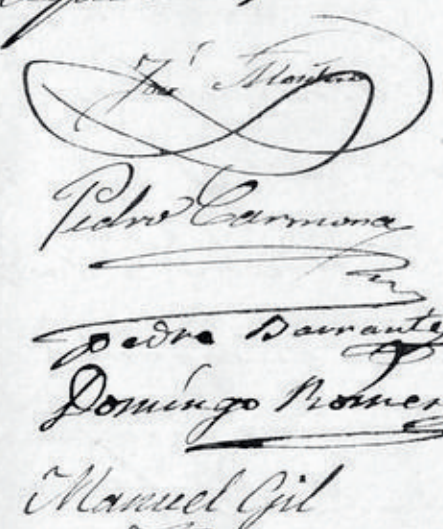 José Montero
Pedro Carmona
Pedro Barrante
Domíngo Romer
Manuel Gil